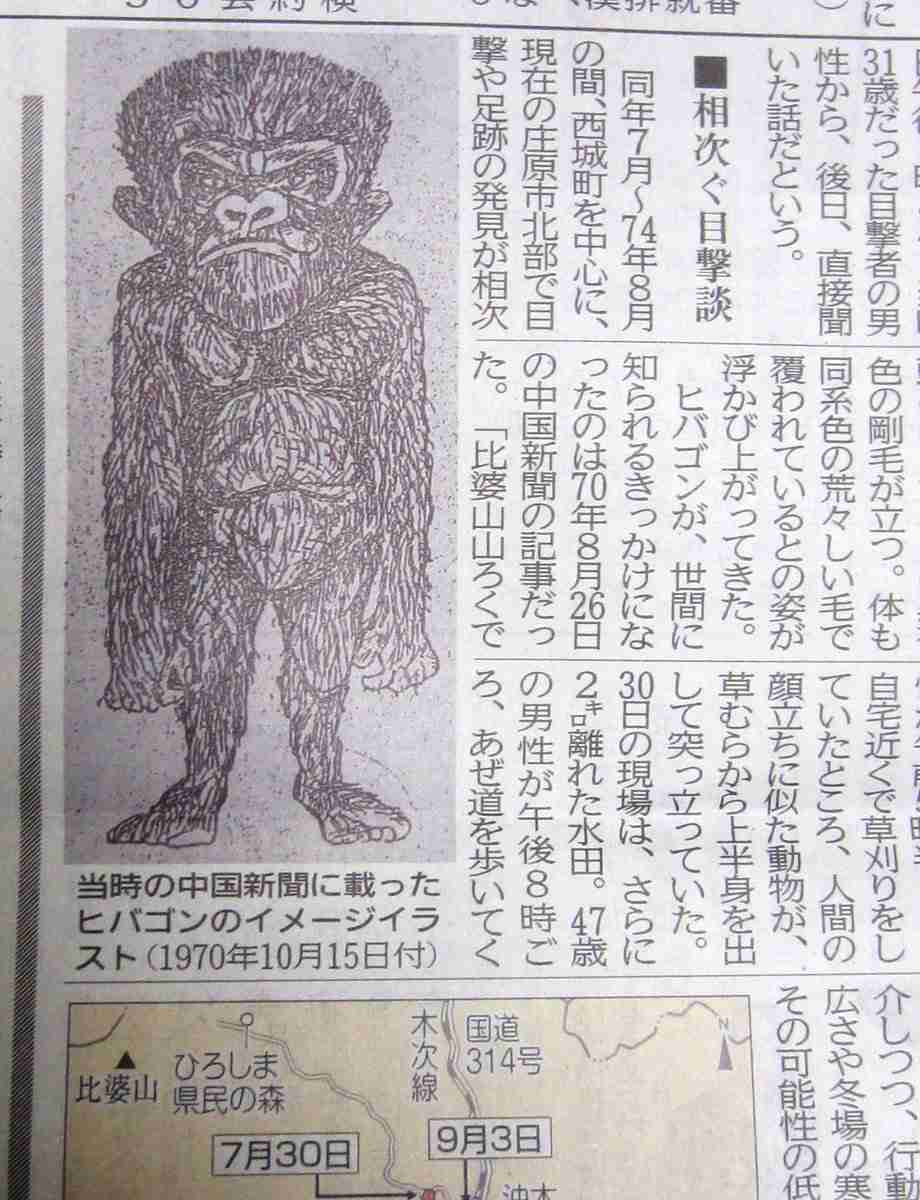 31歳だった目撃者の男
性から、後日、直接聞
いた話だという。
■相次ぐ目撃談
同年7月〜74年8月
の間、西城町を中心に、
現在の庄原市北部で目
撃や足跡の発見が相次
色の剛毛が立つ。体も
同系色の荒々しい毛で
覆われているとの姿が
浮かび上がってきた。
ヒバゴンが、世間に
知られるきっかけにな
ったのは70年8月26日
の中国新聞の記事だっ
た。「比婆山山ろくで
自宅近くで草刈りをし
ていたところ、人間の
顔立ちに似た動物が、
草むらから上半身を出
して突っ立っていた。
30日の現場は、さらに
2㌔離れた水田。47歳
の男性が午後8時ご
ろ、あぜ道を歩いてく
介しつつ、行動
広さや冬場の寒
その可能性の低
当時の中国新聞に載った
ヒバゴンのイメージイラ
スト(1970年10月15日付)
▲
比婆山
ひろしま
県民の森
木次線
国道
314号
N
7月30日
9月3日